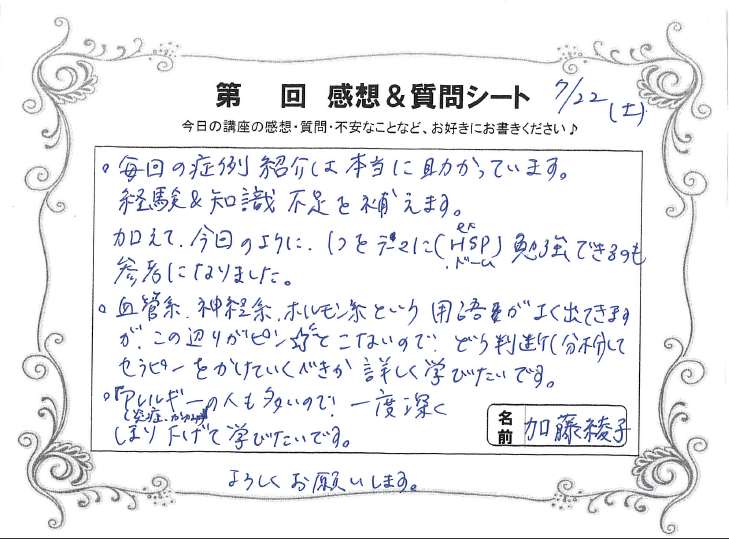 第　回 感想＆質問シート
7/22(土)
今日の講座の感想・質問・不安なことなど、お好きにお書きください♪
。毎回の症例紹介は本当に助かっています。
経験&知識不足を補えます。
加えて、今回のように、1つをテーマに(HSP)勉強できるのも
参考になりました。
。血管系、神経系、ホルモン系という用語が よく出てきます
が、この辺りがピンとこないので、どう判断(分析)して
セラピーをかけていくべきか詳しく学びたいです。
。アレルギーの人も多いので、一度深く
しぼり下げて学びたいです。
名前 加藤綾子
よろしくお願いします。